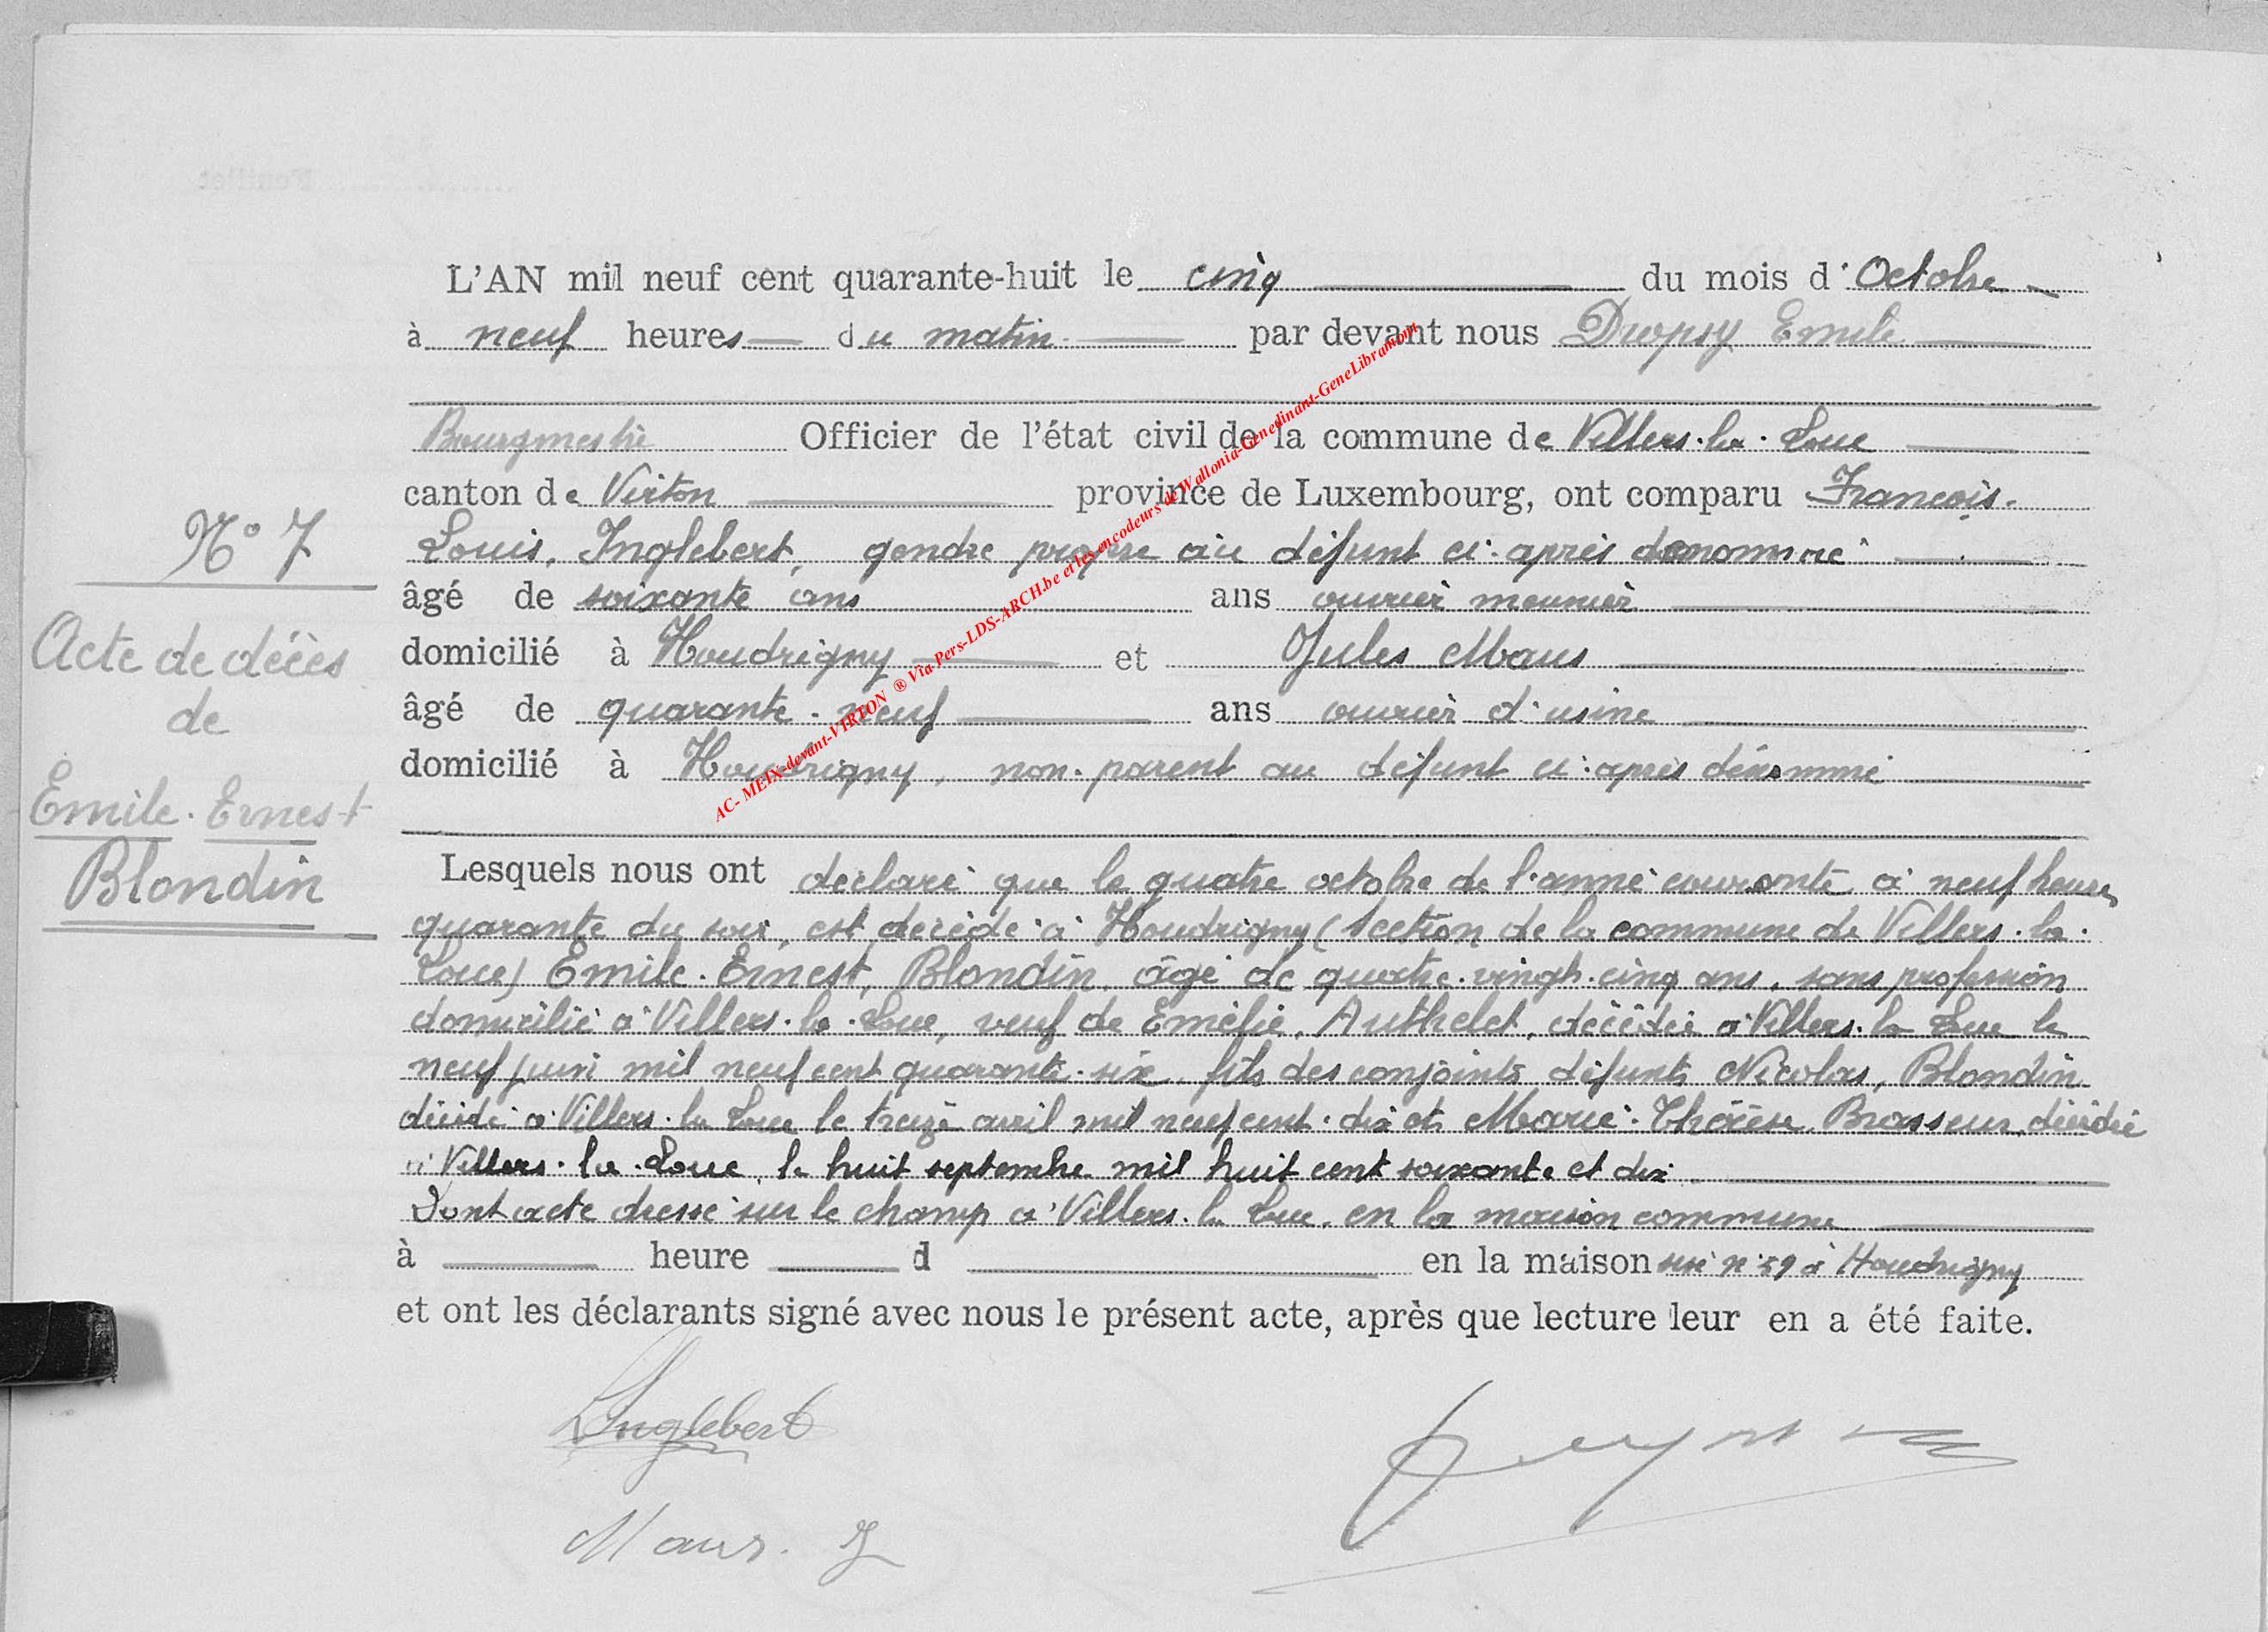 L'AN mil neuf cent quarante-huit le cinq du mois d'Octobre
à neuf heures du matin par devant nous Dropsy Emile
Bourgmestre Officier de l'état civil de la commune de Villers-la-Loue
canton de Virton province de Luxembourg, ont comparu François-
N° 7
Louis, Inglebert, gendre propre au défunt ci-après dénommé
âgé de soixante ans ans ouvrier meunier
Acte de décès
domicilié à Houdrigny et Jules Maus
de
âgé de quarante-neuf ans ouvrier d'usine
domicilié à Houdrigny, non-parent au défunt ci-après dénommé
Emile-Ernest
Blondin
Lesquels nous ont déclaré que le quatre octobre de l'année courante à neuf heures
quarante du soir, est décédé à Houdrigny (Section de la commune de Villers-la-
Loue) Emile-Ernest, Blondin, âgé de quatre-vingt-cinq ans, sans profession
domicilié à Villers-la-Loue, veuf de Emélie, Authelet, décédée à Villers-la Loue le
neuf juin mil neuf cent quarante-six, fils des conjoints défunts Nicolas, Blondin
décédé à Villers-la Loue le treize avril mil neuf cent-dix et Marie-Thérèse, Brasseur, décédée
à Villers-la-Loue, le huit septembre mil huit cent soixante et dix
Dont acte dressé sur le champ à Villers-la Loue, en la maison commune
à heure d en la maison sise n°59 à Houdrigny
et ont les déclarants signé avec nous le présent acte, après que lecture leur en a été faite.
L Inglebert
Maus. J
AC- MEIX-devant-VIRTON ® Via Pers-LDS-ARCH.be et les encodeurs de Wallonia-Genedinant-GeneLibramont